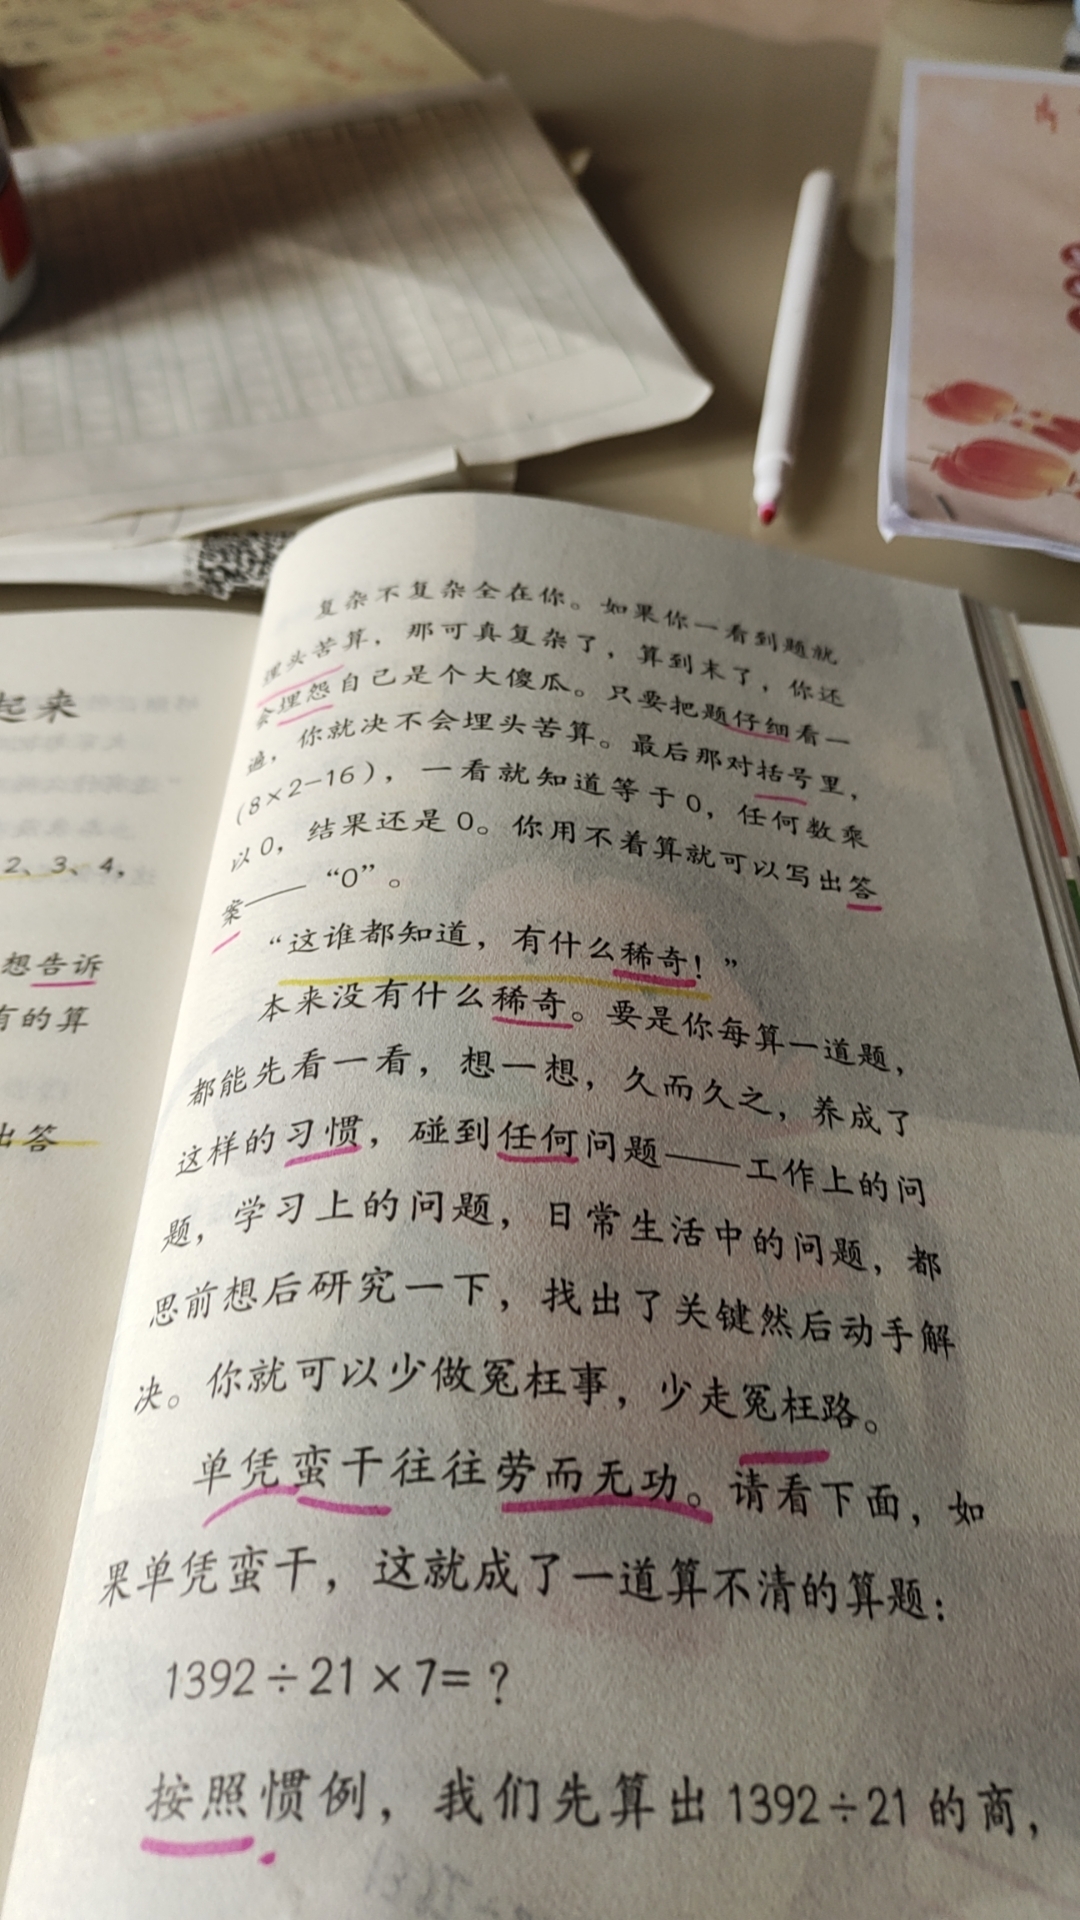 起来
2、3、4，
想告诉
有的算
出答
复杂不复杂全在你。如果你一看到题就
埋头苦算，那可真复杂了，算到末了，你还
会埋怨自己是个大傻瓜。只要把题仔细看一
遍，你就决不会埋头苦算。最后那对括号里，
(8×2-16)，一看就知道等于0，任何数乘
以0，结果还是0。你用不着算就可以写出答
案——“0”。
“这谁都知道，有什么稀奇！”
本来没有什么稀奇。要是你每算一道题，
都能先看一看，想一想，久而久之，养成了
这样的习惯，碰到任何问题——工作上的问
题，学习上的问题，日常生活中的问题，都
思前想后研究一下，找出了关键然后动手解
决。你就可以少做冤枉事，少走冤枉路。
单凭蛮干往往劳而无功。请看下面，如
果单凭蛮干，这就成了一道算不清的算题：
1392÷21×7=？
按照惯例，我们先算出1392÷21的商，